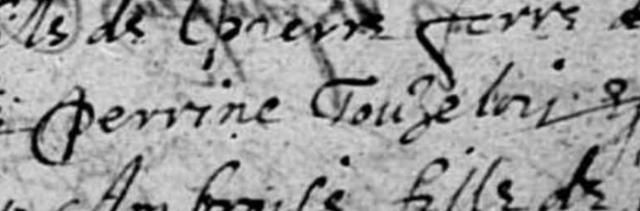 fille de pierre ferre
perrine Touzelin &
Ambroise fille de